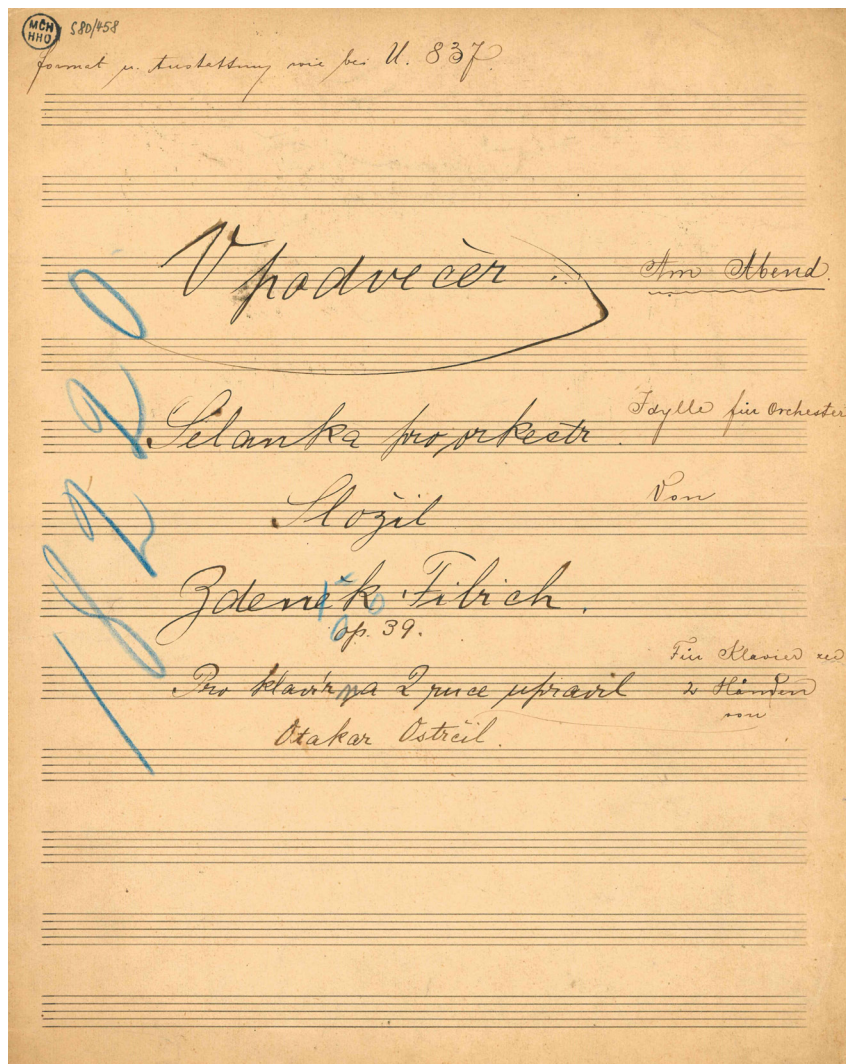 MČH
HHO
S80/458
Format u. Austattung wie bei U. 837
V podvečer Am Abend.
Selanka pro orkestr. Idylle für Orchester
Složil Von
Zdeněk Fibich.
op. 39.
Pro klavír na 2 ruce upravil Für Klavier
Otakar Ostrčil. 2 Händen
von
1820